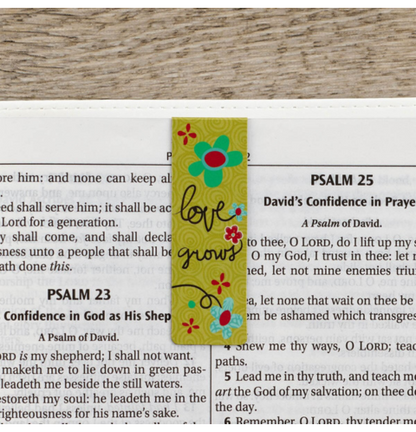 love
grows
P 2
ore him: and none can keep
shall serve him; it shall be
Lord for a generation.
shall come, and shall
unto a people that shall
ath done this.
PSALM 23
Confidence in God as His
A Psalm of David.
is my shepherd; I shall not want.
maketh me to lie down in green pas-
leadeth me beside the still waters.
my soul: he leadeth me in the
righteousness for his name's sake.
PSALM 25
David's Confidence in
A Psalm of David.
to thee, O LORD, do I lift up my
O my God, I trust in thee: let
let not mine enemies
let none that wait on thee be
be ashamed which
4 Shew me thy ways, O LORD;
paths.
5 Lead me in thy truth, and teach
art the God of my salvation; on thee
the day.
6 Remember, O LORD, thy tender